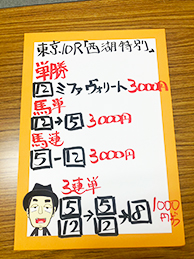 東京10R「西湖特別」
単勝
12 ミファヴォリート 3000円
馬単
12→5 3000円
馬連
5-12 3000円
3連単
5/12→5/12→8 1000円ずつ